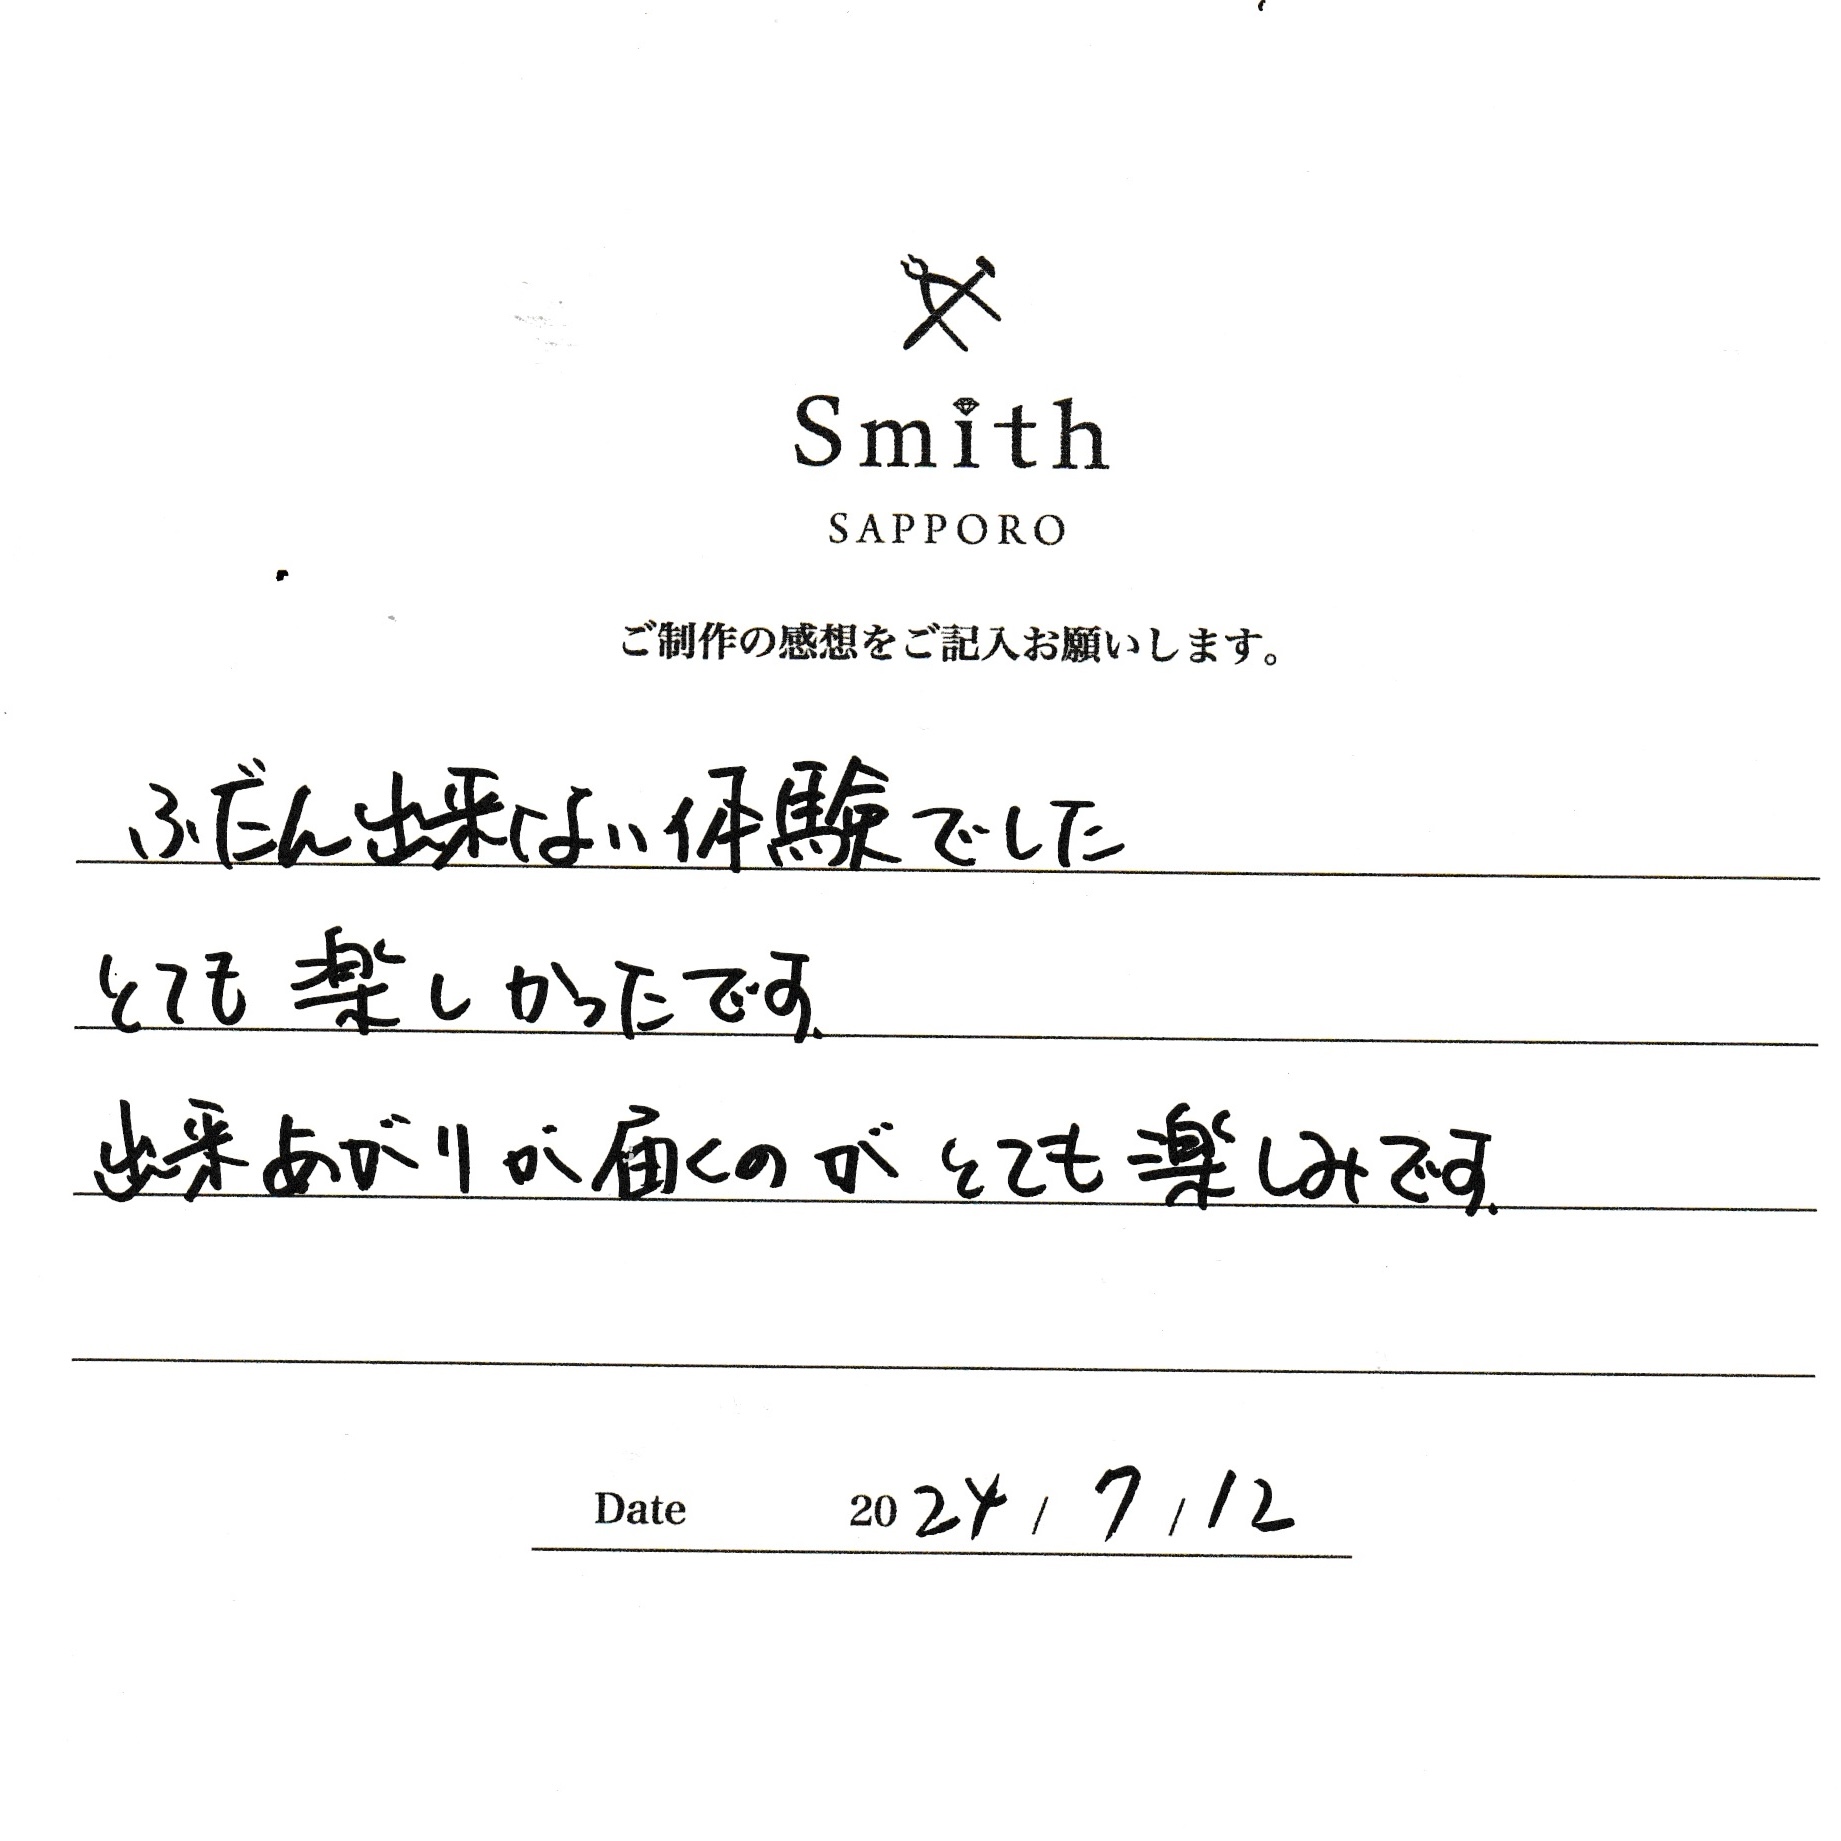 Smith
SAPPORO
ご制作の感想をご記入お願いします。
ふだん出来ない体験でした
とても楽しかったです.
出来あがりが届くのがとても楽しみです.
Date 2024/7/12